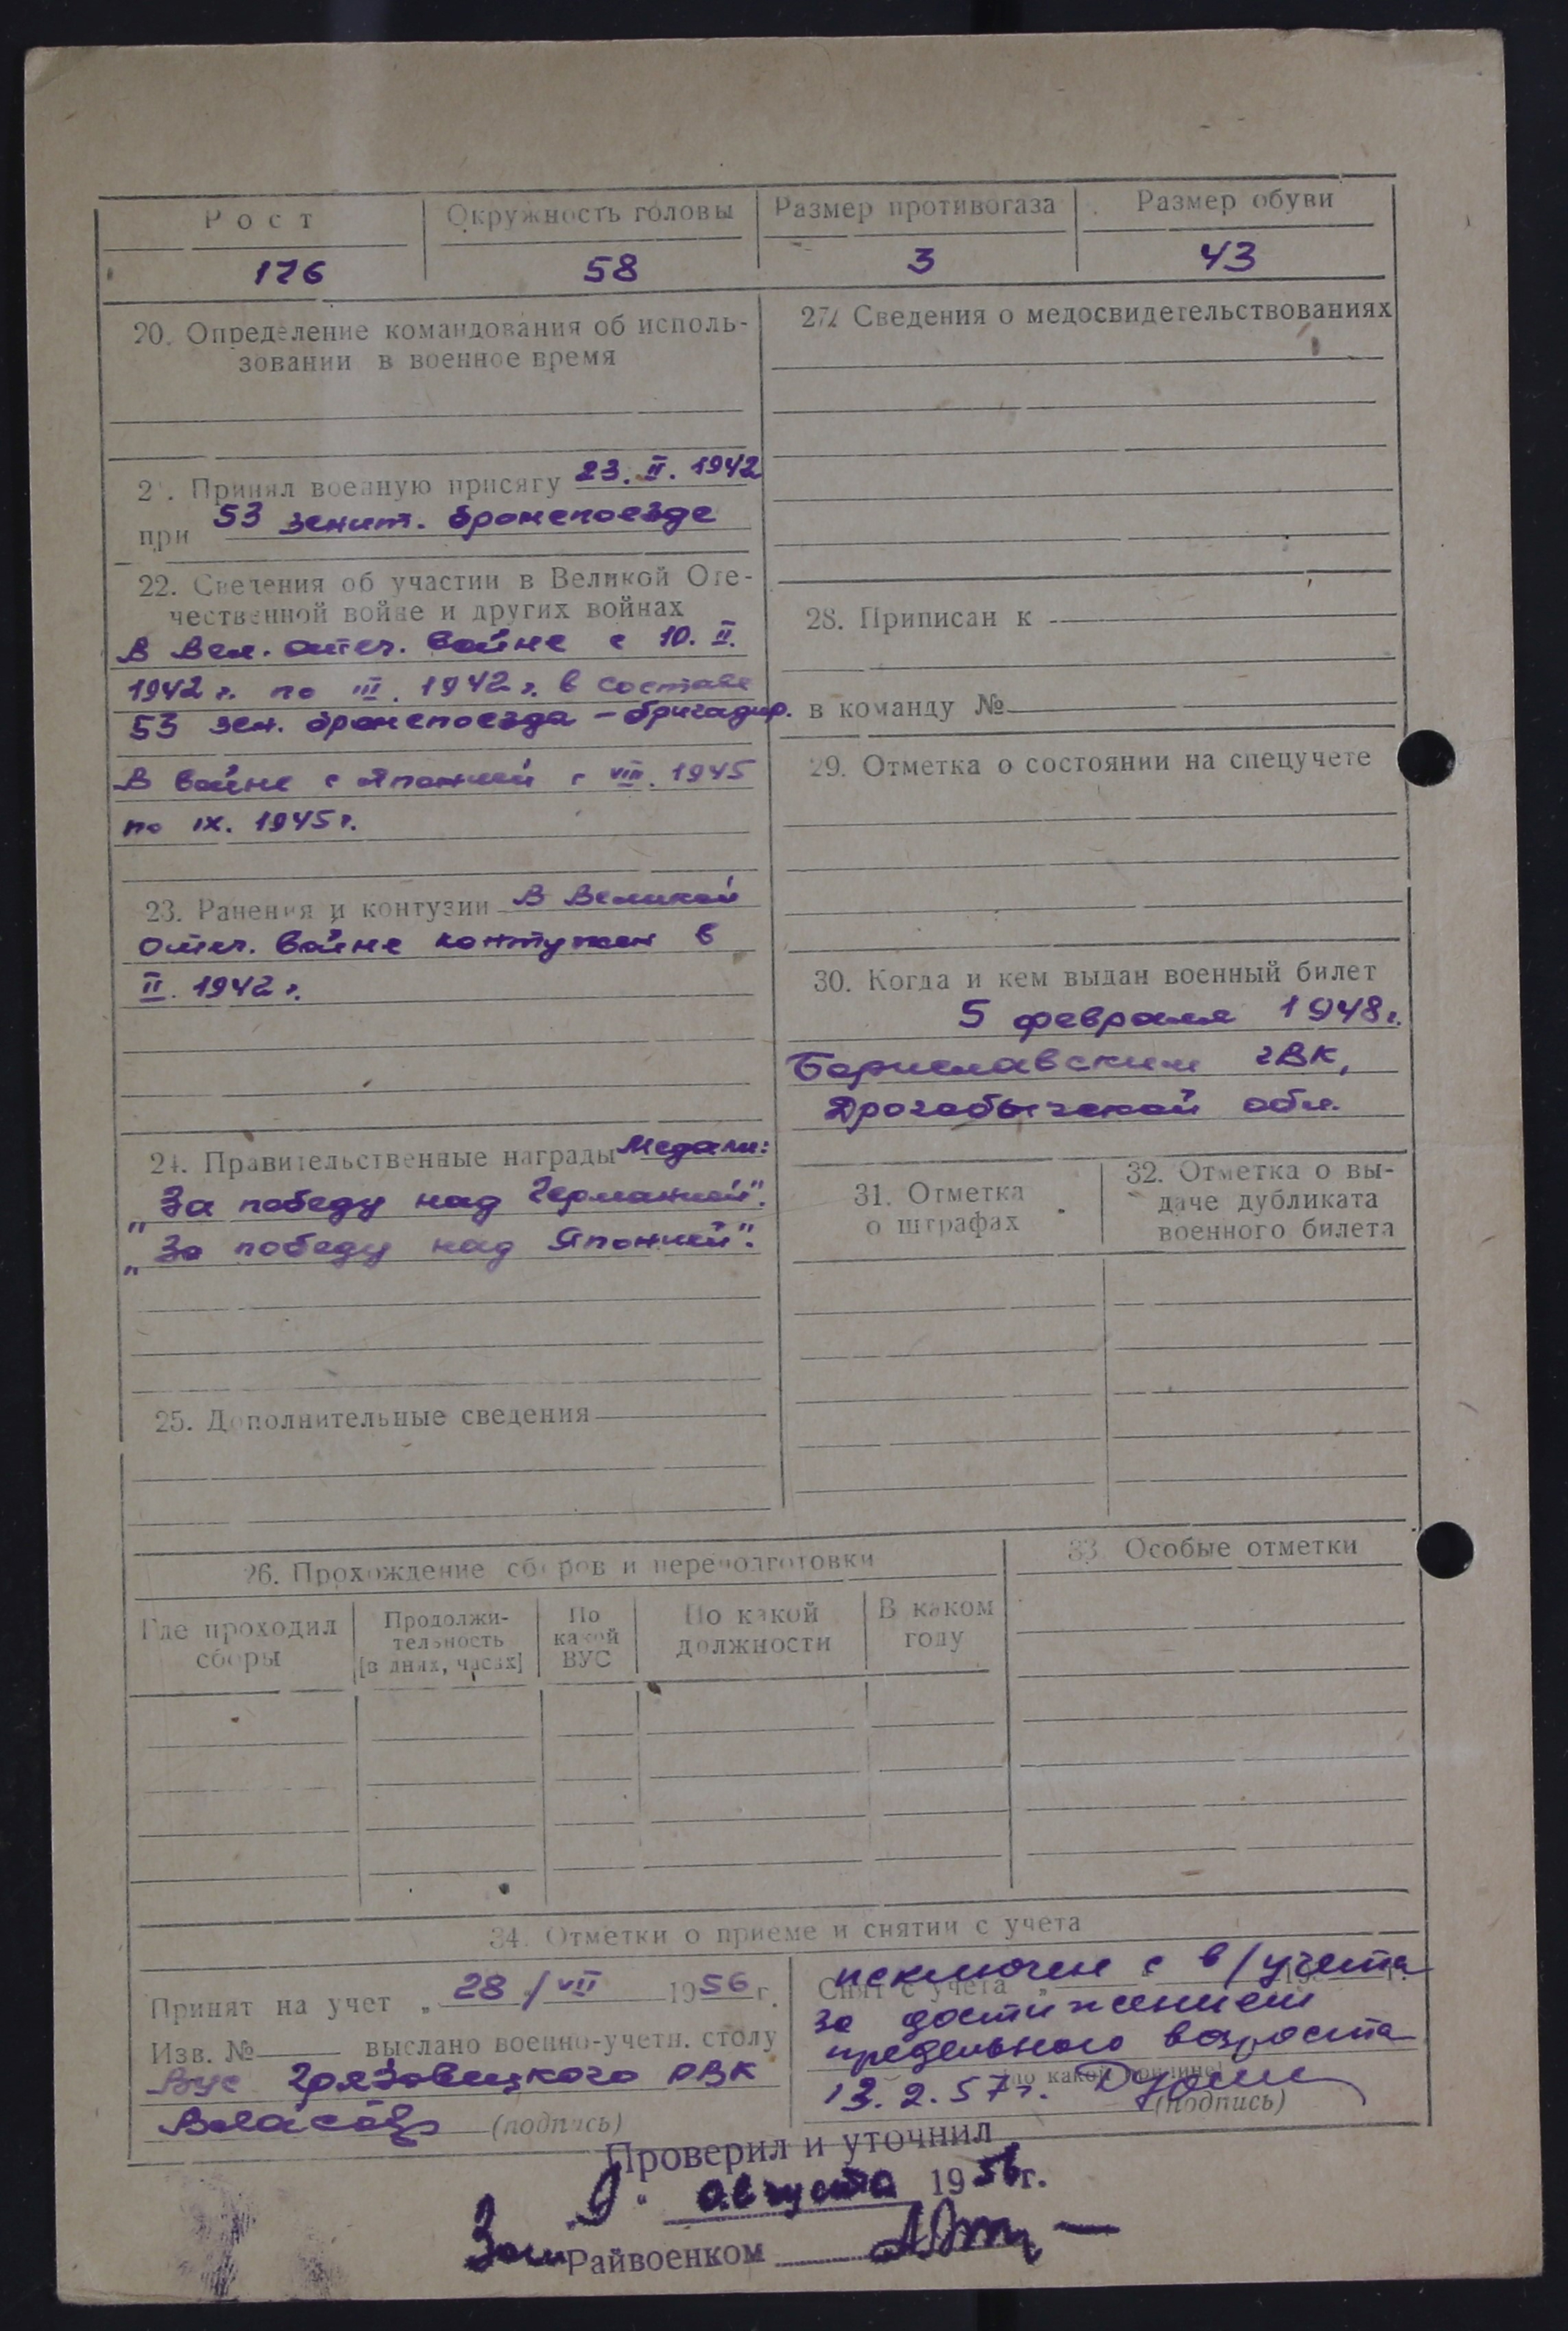 Рост Окружность головы Размер противогаза Размер обуви
176 58 3 43
20. Определение командования об исполь-
зовании в военное время
21. Принял военную присягу 23. II. 1942
при 53 зенит. бронепоезде
22. Сведения об участии в Великой Оте-
чественной войне и других войнах
В Вел. отеч. войне с 10. II.
1942 г. по III. 1942 г. в составе
53 зен. бронепоезда – бригадир.
В войне с Японией с VIII. 1945
по IX. 1945 г.
23. Ранения и контузии В Великой
отеч. войне контужен в
II. 1942 г.
24. Правительственные награды Медали:
„За победу над Германией".
„За победу над Японией".
25. Дополнительные сведения
27. Сведения о медосвидетельствованиях
28. Приписан к
в команду №
29. Отметка о состоянии на спецучете
30. Когда и кем выдан военный билет
5 февраля 1948 г.
Бориславским ГВК,
Дрогобычской обл.
31. Отметка
о штрафах
32. Отметка о вы-
даче дубликата
военного билета
26. Прохождение сборов и переподготовки
Где проходил
сборы
Продолжи-
тельность
[в днях, часах]
По
какой
ВУС
По какой
должности
В каком
году
33. Особые отметки
34. Отметки о приеме и снятии с учета
Принят на учет „ 28 / VII 1956 г.
Изв. № выслано военно-учетн. столу
Вус Грязовецкого РВК
(подпись)
исключен с в/учета
Снят с учета „ 19 г.
за достижением
предельного возраста
(по какой причине)
13. 2. 57 г.
(подпись)
Проверил и уточнил
9 " августа 1956 г.
Зам Райвоенком